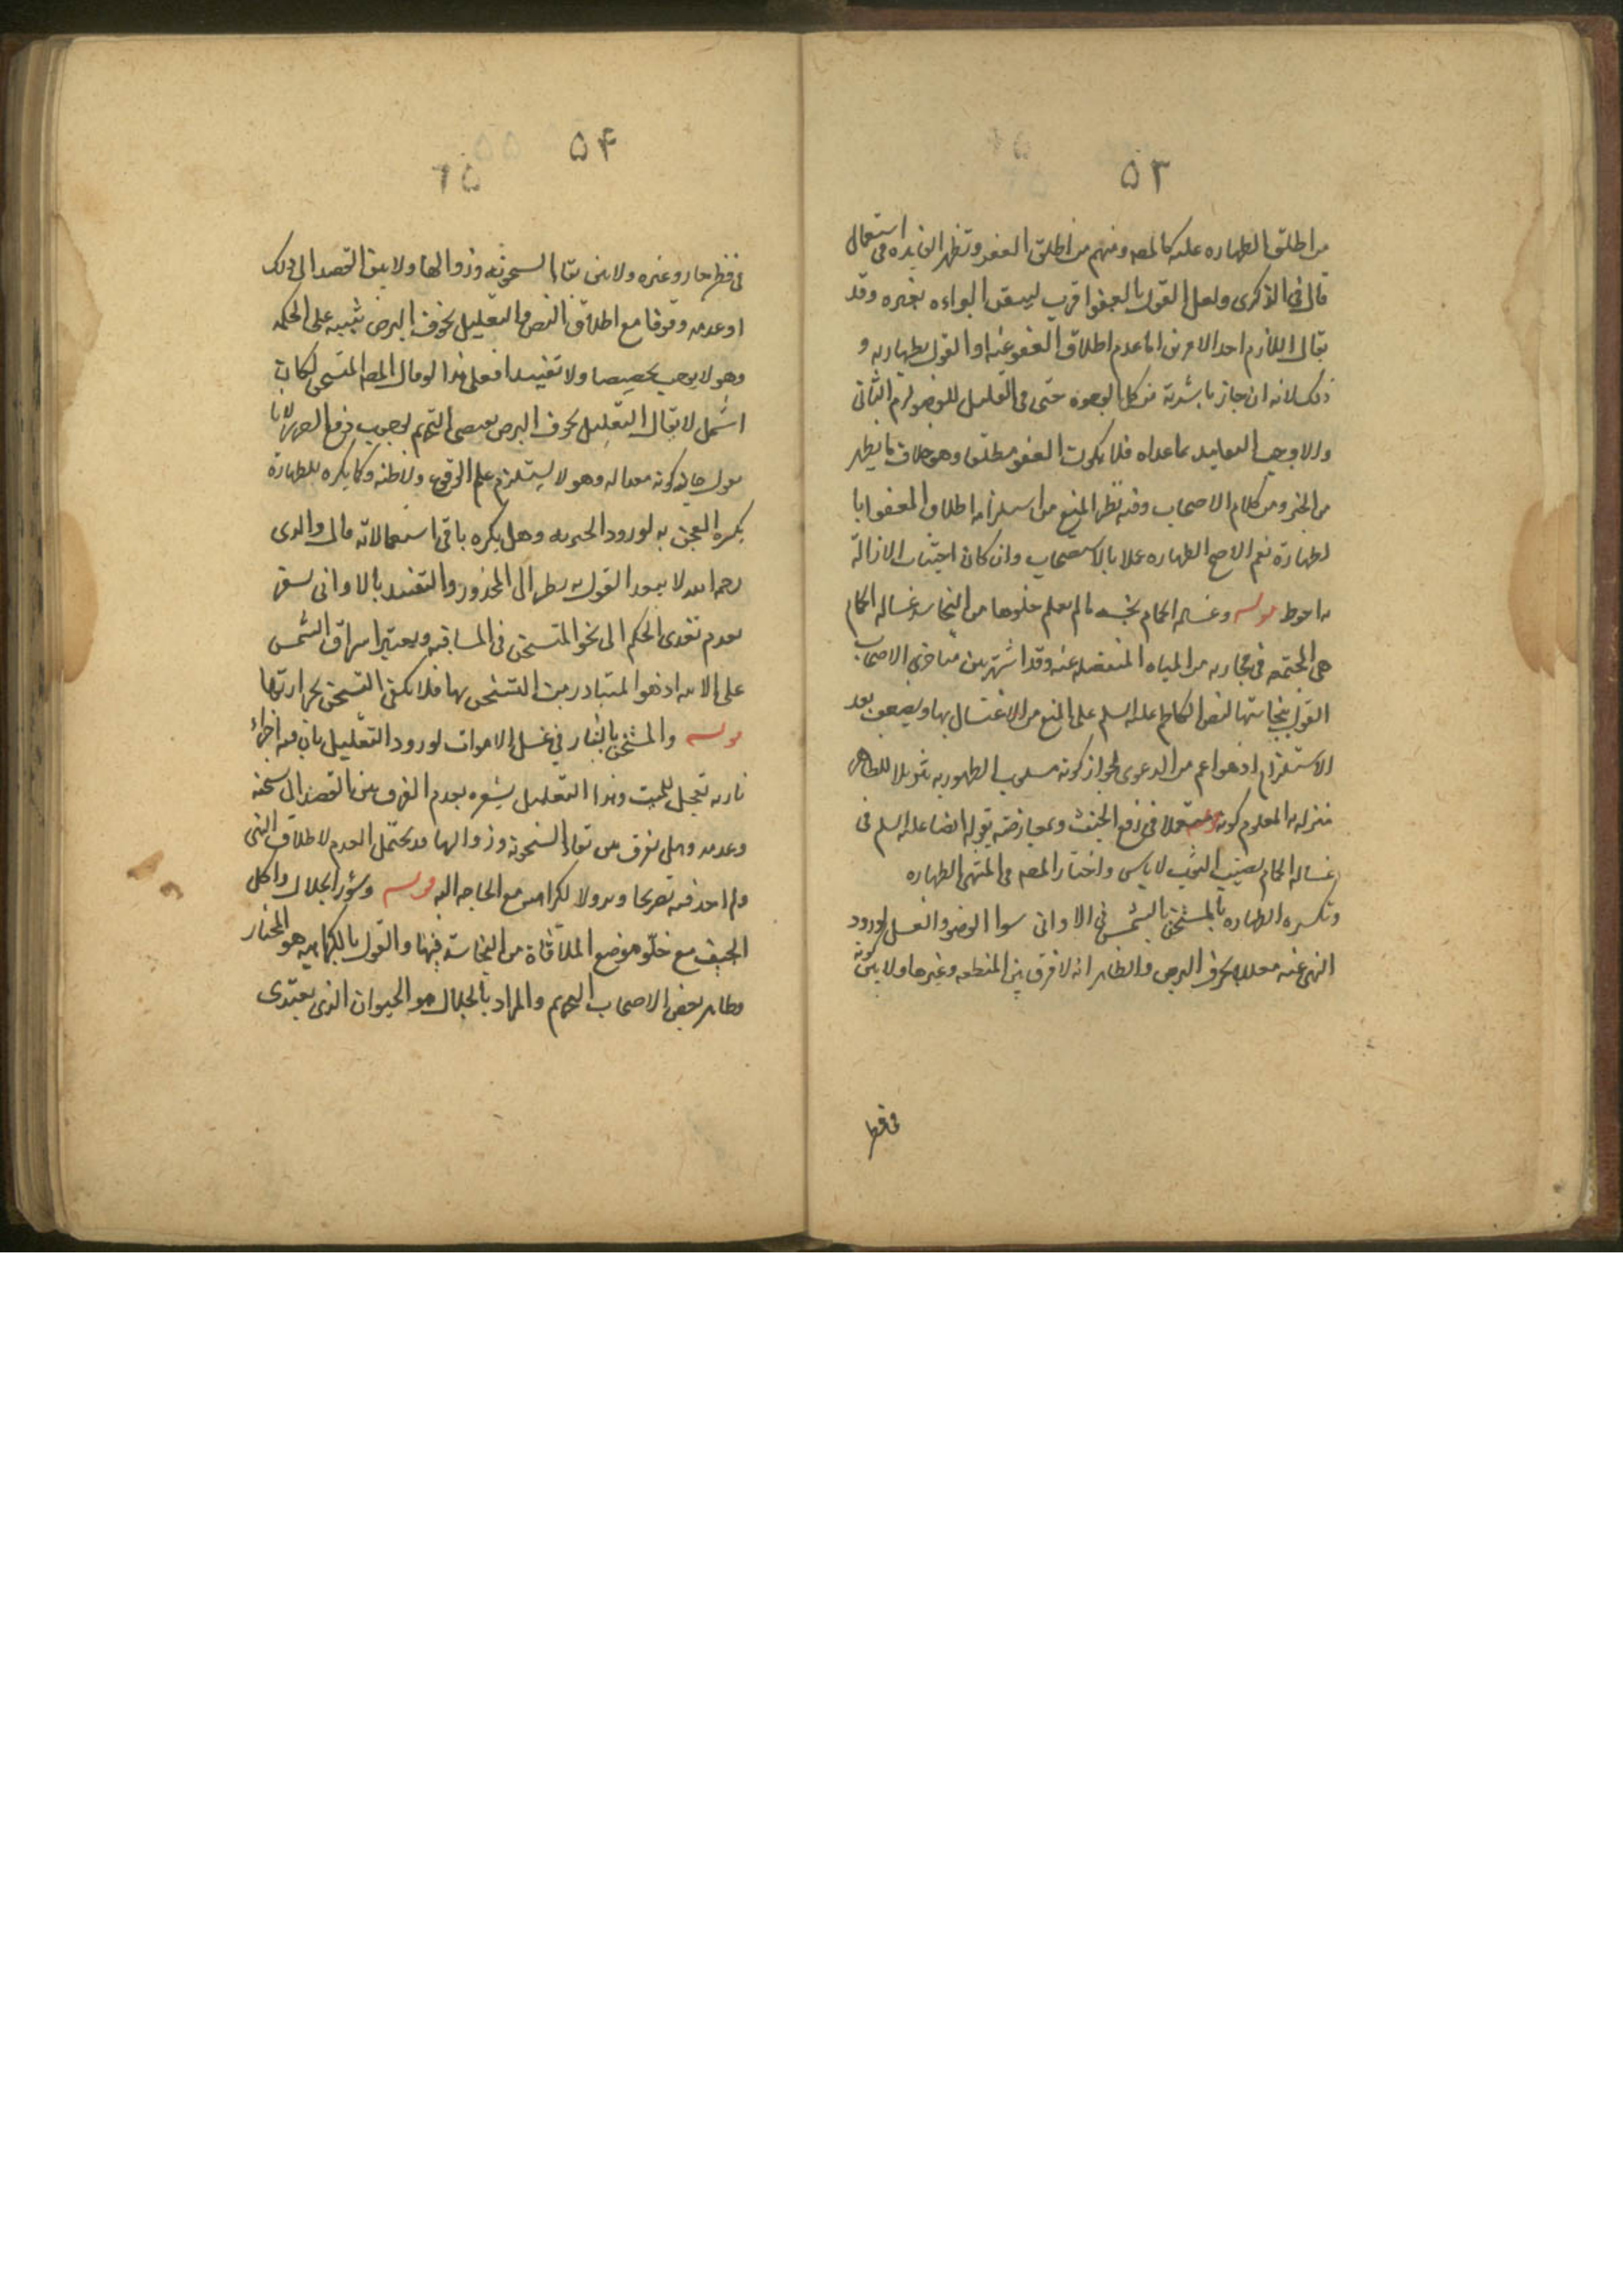 ٥٣
من اطلق الطهاره عليه كالمصه ومنهم من اطلق العفو وتظهر الفايده فى استعمال
قال فى الذكرى ولعل القول بالعفو اقرب ليتيقن البراءه بغيره وقد
يقال اللازم احد الامرين اما عدم اطلاق العفو عنه او القول بطهارته و
ذلك لانه ان جاز مباشرته من كل الوجوه حتى فى القليل للوضو لزم الثانى
والا وجب التقييد بما عداه فلا يكون العفو مطلقا وهو خلاف ما يظهر
من الخبر ومن كلام الاصحاب وفيه نظر المنع من استلزام اطلاق العفو
لطهارته نعم الاصح الطهاره عملا بالاستصحاب وان كان اجتناب الازالة
به احوط قوله وغساله الحمام نجسه ما لم يعلم خلوها من النجاسه غساله الحمام
هى المجتمعه فى مجاريه من المياه المنفصله عنه وقد اشتهر بين متاخرى الاصحاب
القول بنجاستها لنص الكاظم عليه السلم على المنع من الاغتسال بها ويضعف بعد
الاستلزام اذ هو اعم من الدعوى لجواز كونه مسلوب الطهوريه تنزيلا للظاهر
منزله المعلوم كونه مستعملا فى رفع الخبث ومعارضته بقوله ايضا عليه السلم فى
غساله الحمام يصيب الثوب لا باس واختار المصه فى المنتهى الطهاره
وتكره الطهاره بالمسخن بالشمس فى الاوانى سوا الوضو والغسل لورود
النهى عنه معللا بخوف البرص والظاهر انه لا فرق بين المنطبعه وغيرها ولا بين كونه
فى قطر
٥٤
٦٥
فى قطر حار وغيره ولا بين بقاء السخونه وزوالها ولا بين القصد الى ذلك
او عدمه وقوفا مع اطلاق النص والتعليل بخوف البرص تنبيه على الحكمه
وهو لا يوجب تخصيصا ولا تقييدا فعلى هذا لو قال المصه المتسخن لكان
اشمل لا يقال التعليل بخوف البرص يقتضى التحريم لوجوب دفع الضرر لانا
نقول غايته كونه معداله وهو لا يستلزم علم الوقوع ولا ظنه وكما يكره للطهارة
يكره العجن به لورود الخبر به وهل يكره باقى استعمالاته قال والدى
رحمه الله لا يبعد القول به نظرا الى المحذور والتقييد بالاوانى
بعدم تعدى الحكم الى نحو المتسخن فى الساقيه ويعتبر اشراق الشمس
على الانيه اذ هو المتبادر من التسخن بها فلا يكفى التسخن بحرارتها
قوله والمسخن بالنار فى غسل الاموات لورود التعليل بان فيه اجزاء
ناريه تعجل للميت وهذا التعليل يشعر بعدم الفرق بين القصد الى سخنه
وعدمه وهل يفرق بين بقاء السخونه وزوالها قد يحتمل العدم لاطلاق النهى
ولم اجد فيه تصريحا وتزول الكراهه مع الحاجه اليه قوله وسؤر الجلال واكل
الجيف مع خلو موضع الملاقاة من النجاسه فيهما والقول بالكراهيه هو المختار
وظاهر بعض الاصحاب التحريم والمراد بالجلال هو الحيوان الذى يغتذى